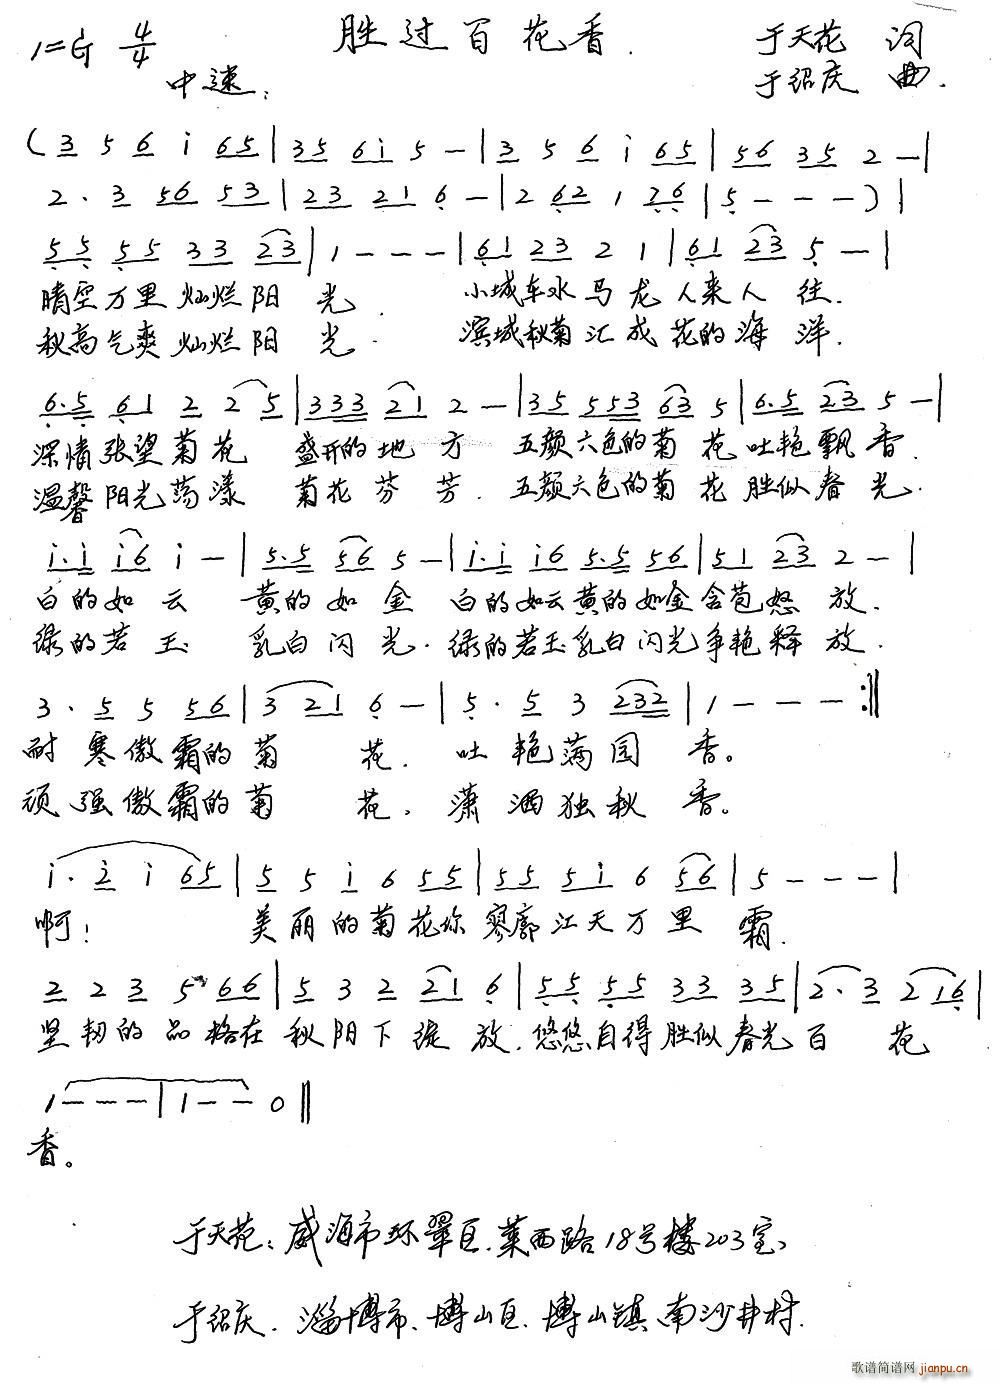 胜过百花香.
1=G 4/4
于天花 词
中速:
于绍庆 曲.
(3 5 6 i 65|35 6i 5 —|3 5 6 i 65|56 35 2 —|
2. 3 56 53|23 21 6 —|2 62 1 76|5 — — —)|
55 55 33 23|1 — — —|61 23 2 1|61 23 5 —|
晴空万里灿烂阳光. 小城车水马龙人来人往.
秋高气爽灿烂阳光. 滨城秋菊汇成花的海洋.
6.5 61 2 2 5|333 21 2 —|35 553 63 5|6.5 23 5 —|
深情张望菊花 盛开的地方 五颜六色的菊花吐艳飘香.
温馨阳光荡漾 菊花芬芳. 五颜六色的菊花胜似春光.
i.i i6 i —|5.5 56 5 —|i.i i6 5.5 56|51 23 2 —|
白的如云 黄的如金 白的如云黄的如金含苞怒放.
绿的若玉 乳白闪光. 绿的若玉乳白闪光争艳释放.
3. 5 5 56|3 21 6 —|5. 5 3 232|1 — — — :‖
耐寒傲霜的菊花. 吐艳满园香。
顽强傲霜的菊花, 潇洒独秋香。
i. 2 i 65|5 5 i 6 55|55 5i 6 56|5 — — —|
啊! 美丽的菊花你寥廓江天万里霜.
2 2 3 5 66|5 3 2 21 6|55 55 33 35|2. 3 2 16|
坚韧的品格在秋阳下绽放. 悠悠自得胜似春光百花
1 — — —|1 — — 0‖
香。
于天花: 威海市环翠区. 莱西路18号楼203室、
于绍庆. 淄博市、博山区. 博山镇、南沙井村.
歌谱简谱网 jianpu.cn